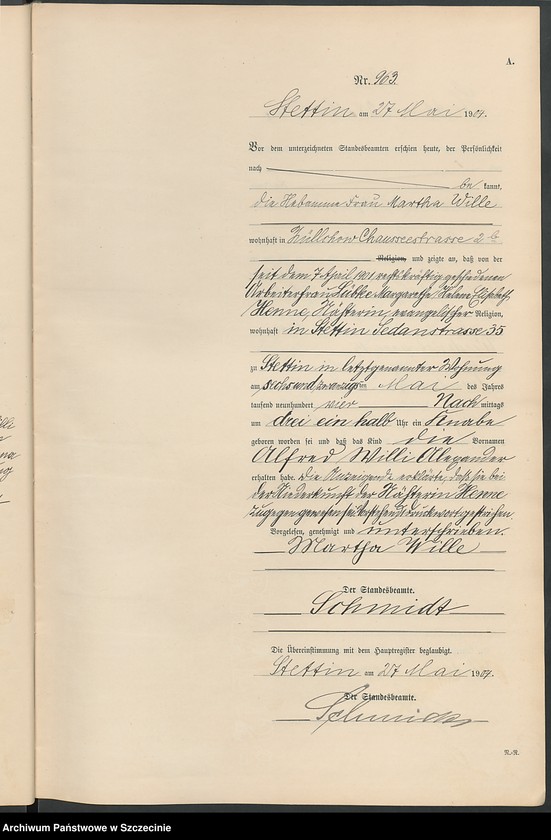 A.
Nr. 963.
Stettin am 27 Mai 1904.
Vor dem unterzeichneten Standesbeamten erschien heute, der Persönlichkeit
nach
be kannt,
die Hebamme Frau Martha Wille
wohnhaft in Züllchow Chausseestrasse 2b
Religion, und zeigte an, daß von der
seit dem 7 April 1901 rechtskräftig geschiedenen
Arbeiterfrau Lübke Margarethe Helene Elisabeth
Henne, Nähterin, evangelischer Religion,
wohnhaft in Stettin Sedanstrasse 35
zu Stettin in letztgenannter Wohnung
am sechsundzwanzigsten Mai des Jahres
tausend neunhundert vier Nach mittags
um drei ein halb Uhr ein Knabe
geboren worden sei und daß das Kind die Vornamen
Alfred Willi Alexander
erhalten habe. Die Anzeigende erklärte, dass sie bei
der Niederkunft der Nähterin Henne
zugegen gewesen sei. Vorstehend Druckwort gestrichen.
Vorgelesen, genehmigt und unterschrieben.
Martha Wille
Der Standesbeamte.
Schmidt
Die Übereinstimmung mit dem Hauptregister beglaubigt.
Stettin am 27 Mai 1904.
Der Standesbeamte.
R.-R.
Archiwum Państwowe w Szczecinie